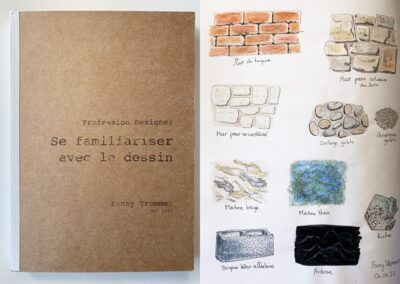 Profession Designer
Se familiariser
avec le dessin
Fanny Trommer
Mur de brique
Mur pierre calcaire
du Jura
Mur pierre
Dallage galets
galets
Marbre beige
Marbre bleu
Roche
Brique béton
Ardoise
Fanny